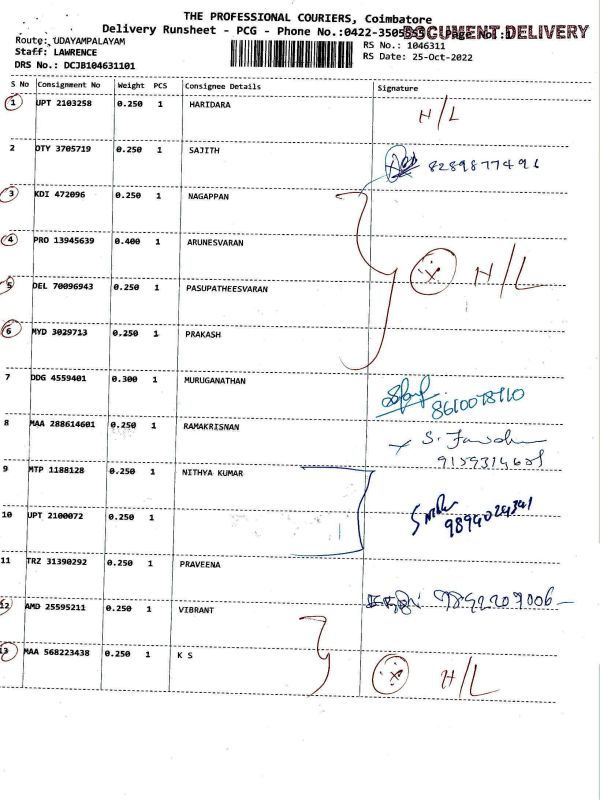 THE PROFESSIONAL COURIERS, Coimbatore
Delivery Runsheet - PCG - Phone No.:0422-3505555 Page No.:1
DOCUMENT DELIVERY
Route: UDAYAMPALAYAM
RS No.: 1046311
Staff: LAWRENCE
RS Date: 25-Oct-2022
DRS No.: DCJB104631101
S No Consignment No Weight PCS Consignee Details Signature
1 UPT 2103258 0.250 1 HARIDARA H/L
2 OTY 3705719 0.250 1 SAJITH 8289877496
3 KDI 472096 0.250 1 NAGAPPAN
4 PRO 13945639 0.400 1 ARUNESVARAN H/L
5 DEL 70096943 0.250 1 PASUPATHEESVARAN
6 MYD 3029713 0.250 1 PRAKASH
7 DDG 4559401 0.300 1 MURUGANATHAN
8 MAA 288614601 0.250 1 RAMAKRISNAN
9 MTP 1188128 0.250 1 NITHYA KUMAR
10 UPT 2100072 0.250 1 9894024341
11 TRZ 31390292 0.250 1 PRAVEENA
12 AMD 25595211 0.250 1 VIBRANT
13 MAA 568223438 0.250 1 K S H/L